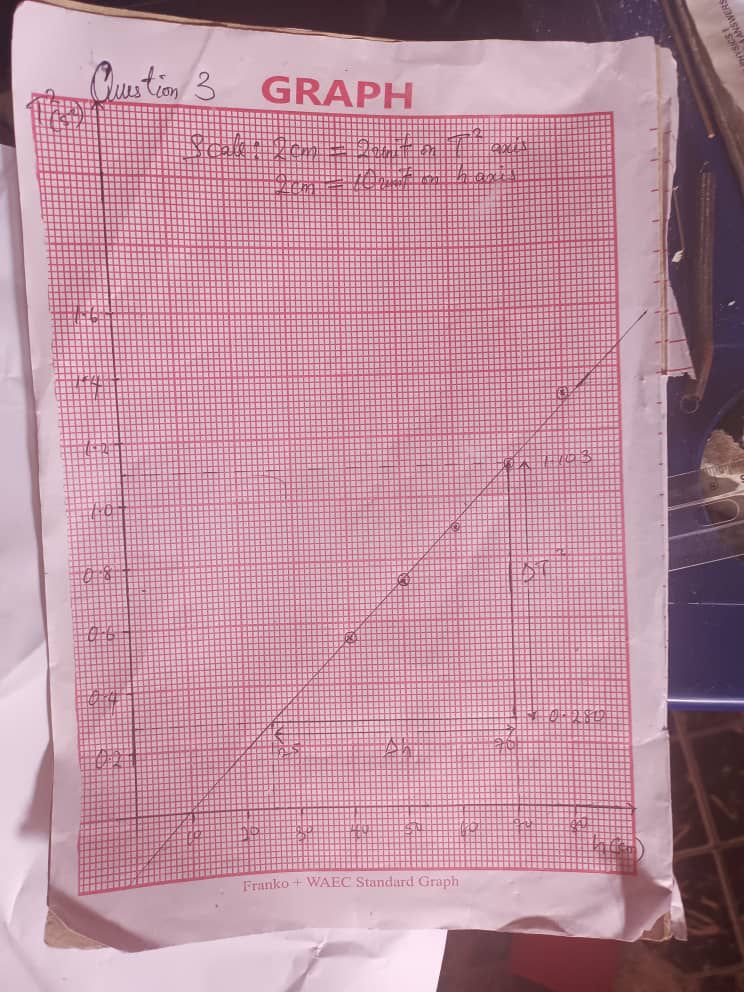 Question 3
GRAPH
T² (s²)
Scale: 2cm = 2unit on T² axis
2cm = 10unit on h axis
1.6
1.4
1.2
1.103
1.0
0.8
ΔT²
0.6
0.4
0.280
25
Δh
70
0.2
10 20 30 40 50 60 70 80
h(cm)
Franko + WAEC Standard Graph